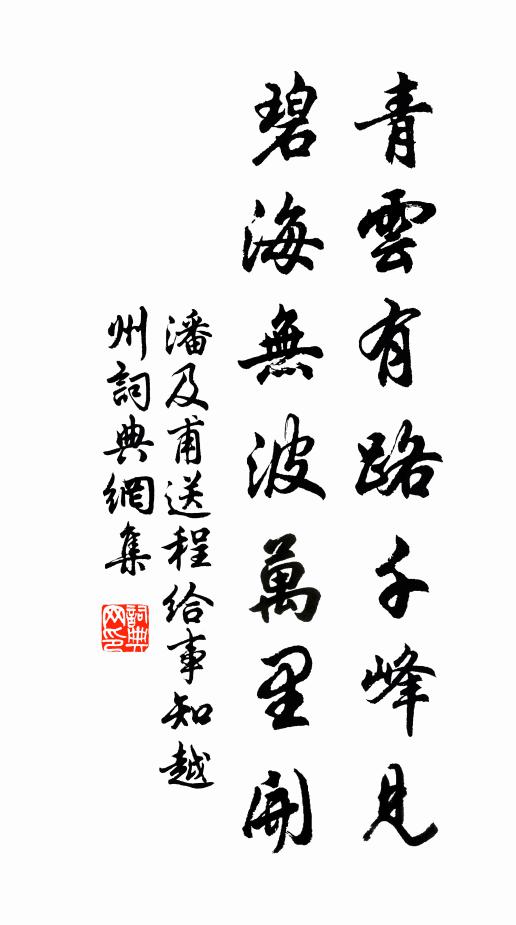 青雲有路千峰見
碧海無波萬里開
潘及甫送程给事知越
州詞典網集
詞典
网印